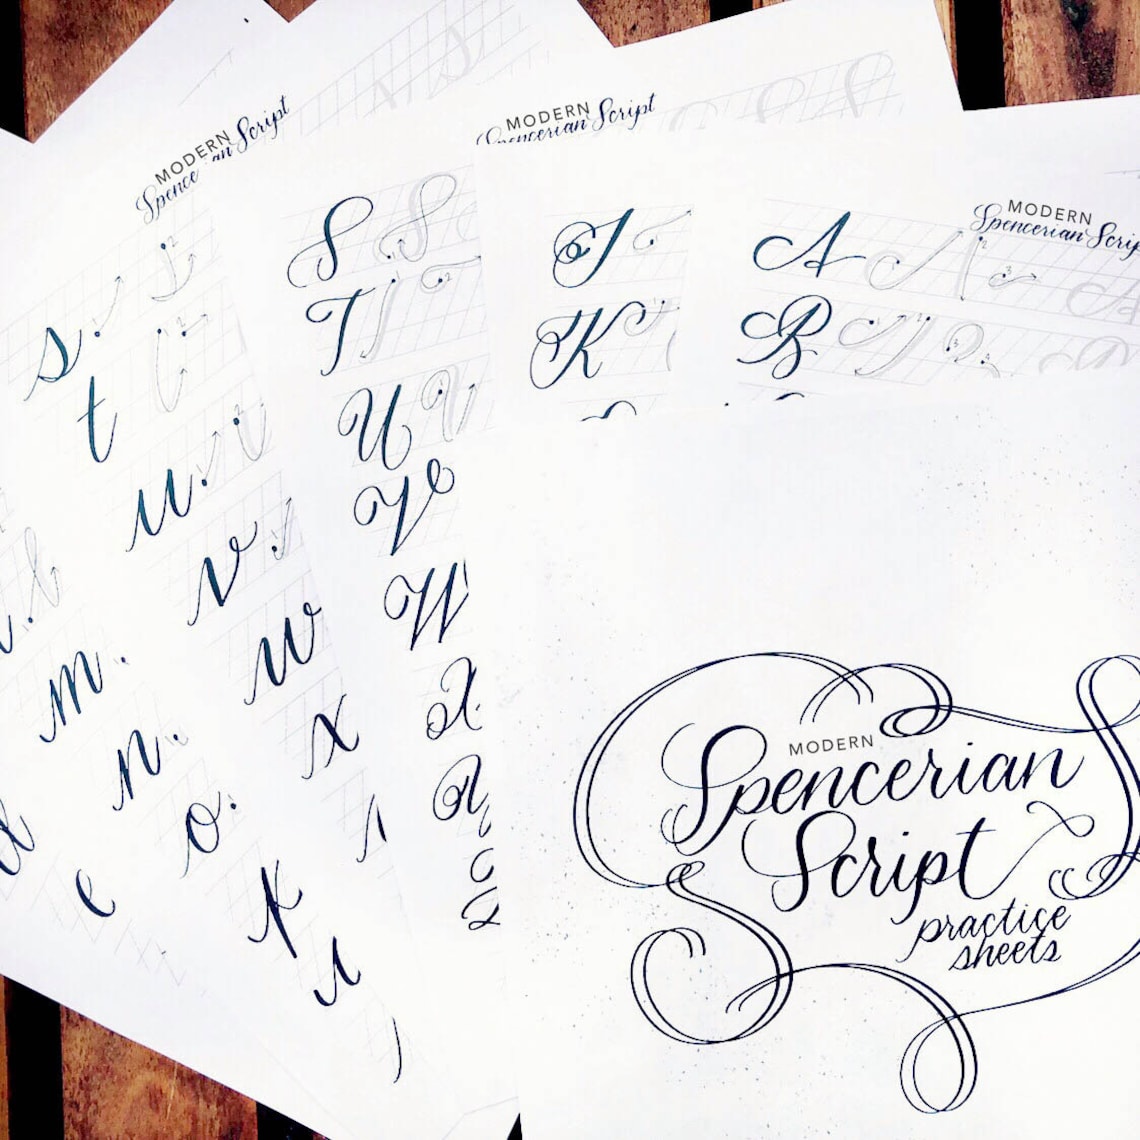 MODERN
Spencerian Script
MODERN
Spencerian Script
MODERN
Spencerian Script
s
t
u
v
w
x
m
n
o
e
S
T
U
V
W
X
J
K
A
B
MODERN
Spencerian
Script
practice
sheets